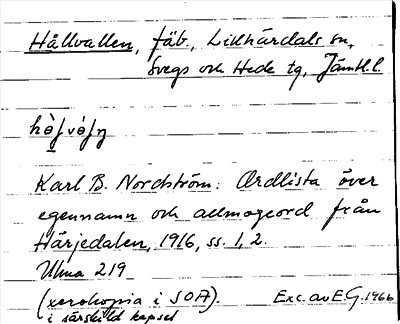 Hållvallen, fäb., Lillhärdals sn,
Svegs och Hede tg, Jämtl.l.
Karl B. Nordström: Ordlista över
egennamn och allmogeord från
Härjedalen, 1916, ss. 1, 2.
Ulma 219
(xerokopia i SOA). Exc. av E.G. 1966
i särskild kapsel